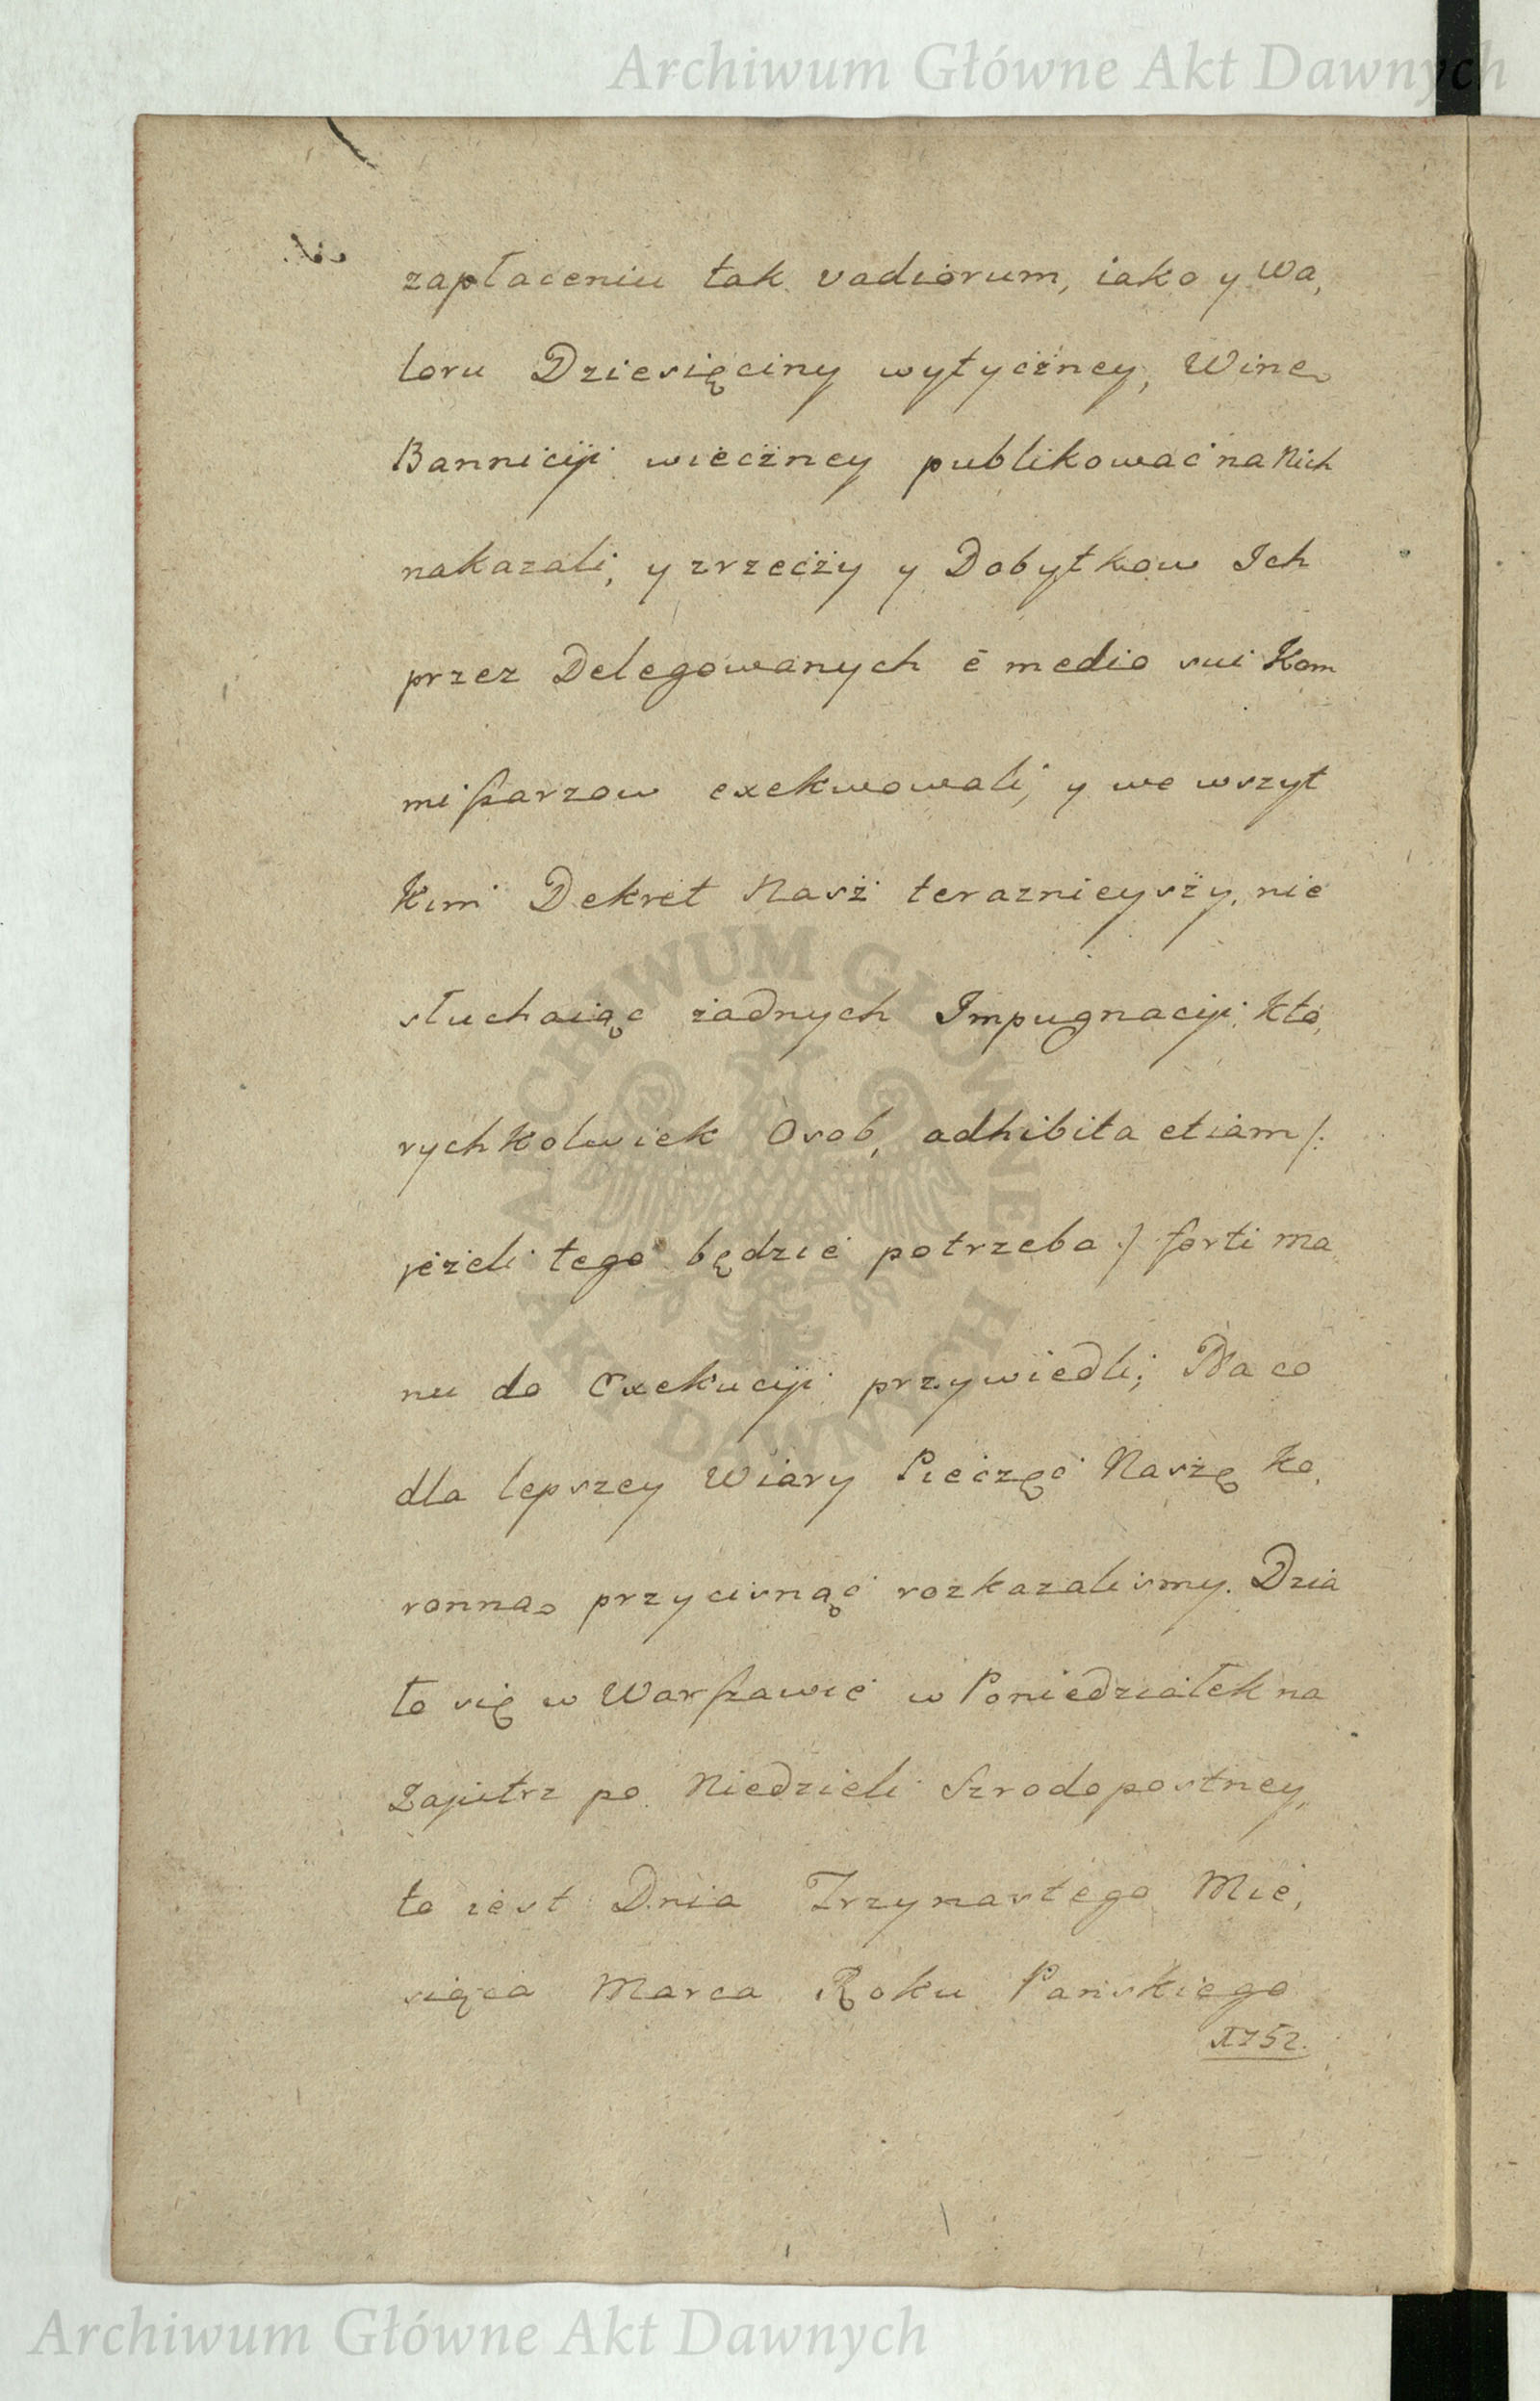 Archiwum Główne Akt Dawnych
zapłaceniu tak vadiorum, iako y Wa,
loru Dziesięciny wytyczney, Winę
Bannicÿi wieczney publikować na Nich
nakazali, y zrzeczy y Dobytkow Ich
przez Delegowanych è medio sui Kom
mißarzow exekwowali, y we wszyt
Kim Dekret Nasz teraznieyszy, nie
słuchaiąc żadnych Impugnacÿi Kto,
rychkolwiek Osob, adhibita etiam /:
jeżeli tego będzie potrzeba :/ forti ma
nu do Exekucÿi przywiedli; Na co
dla lepszey Wiary Pieczęć Naszę Ko,
ronną przycisnąć rozkazalismy. Dzia
ło się w Warßawie w Poniedziałek na
Zajutrz po Niedzieli Szrodopostney,
to iest Dnia Trzynastego Mie,
siąca Marca Roku Pańskiego
1752.
ARCHIWUM GŁÓWNE
AKT DAWNYCH
Archiwum Główne Akt Dawnych